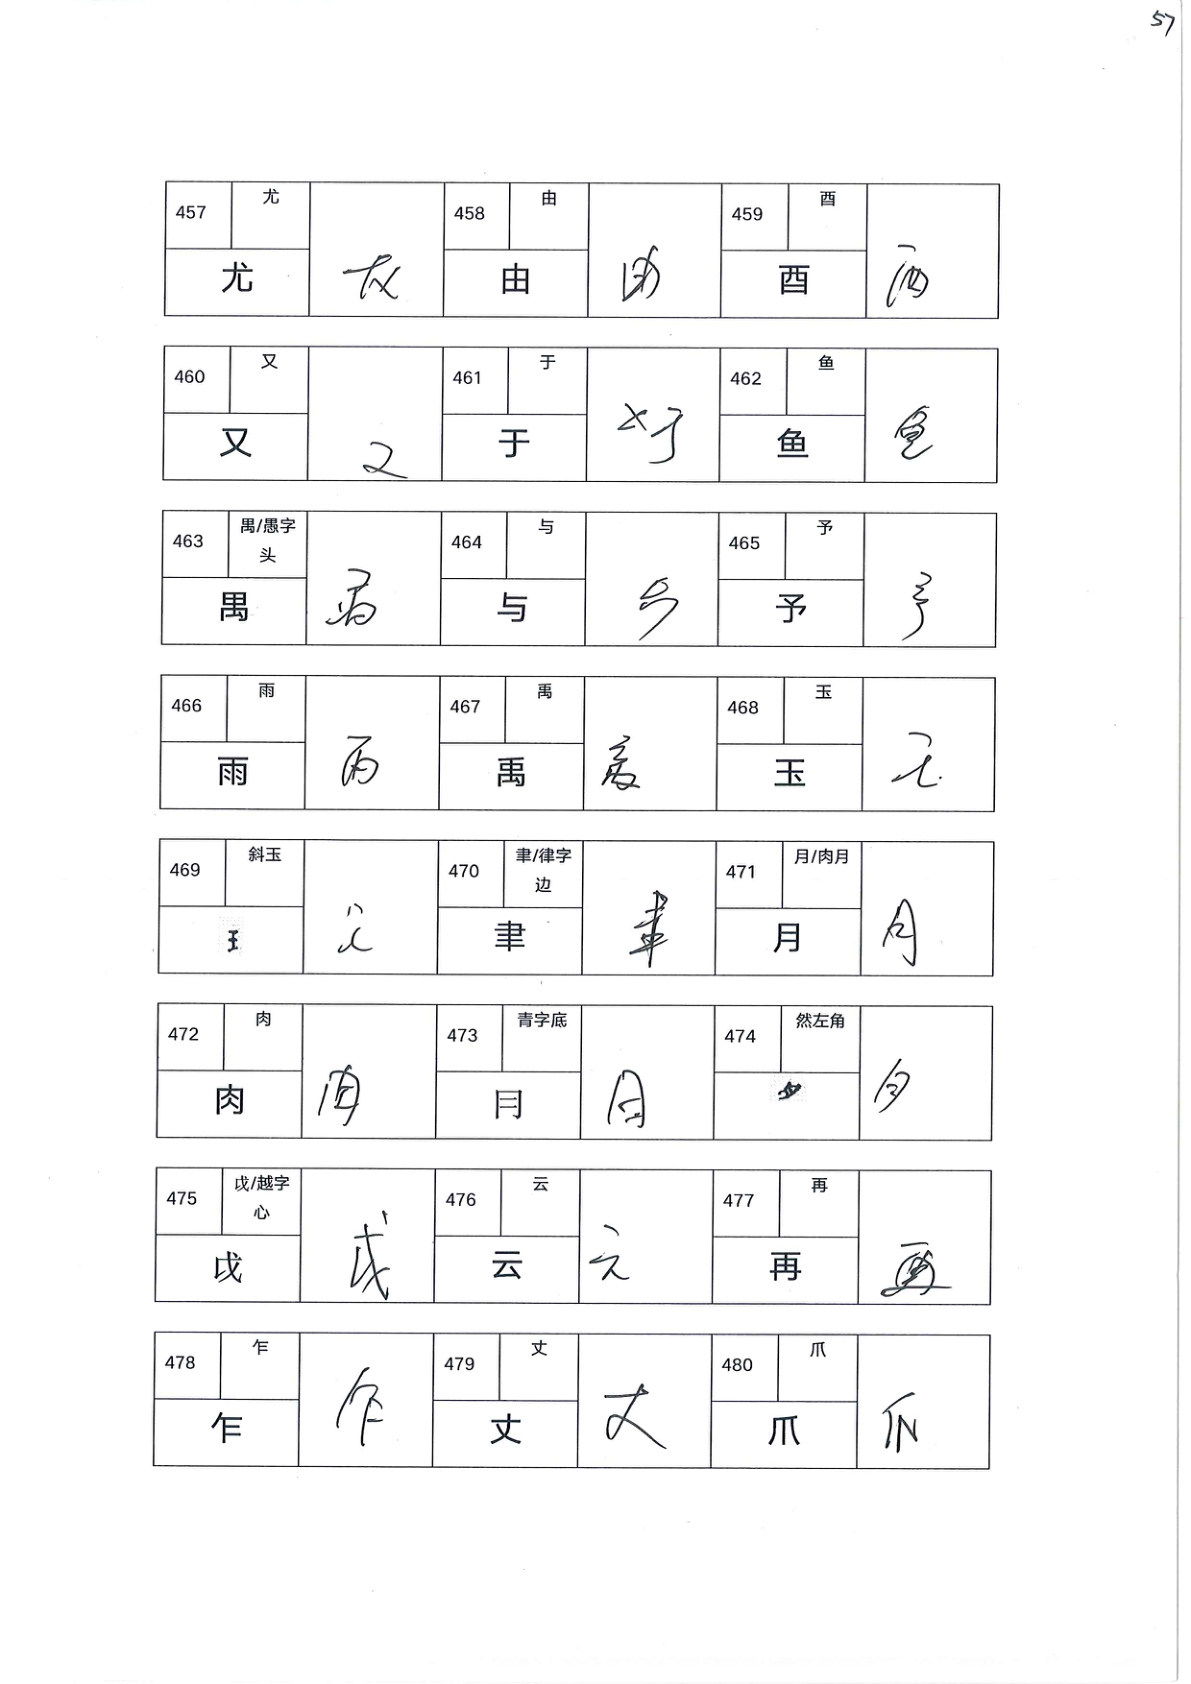 57
457 尤 458 由 459 酉
尤 尤 由 由 酉 酉
460 又 461 于 462 鱼
又 又 于 于 鱼 鱼
463 禺/愚字头 464 与 465 予
禺 禺 与 与 予 予
466 雨 467 禹 468 玉
雨 雨 禹 禹 玉 玉
469 斜玉 470 聿/律字边 471 月/肉月
聿 聿 月 月
472 肉 473 青字底 474 然左角
肉 肉 ⺝
475 戉/越字心 476 云 477 再
戉 戉 云 云 再 再
478 乍 479 丈 480 爪
乍 乍 丈 丈 爪 爪